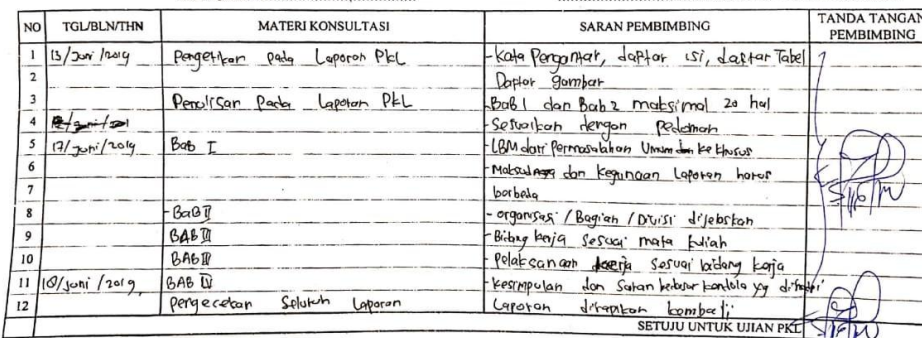 NO TGL/BLN/THN MATERI KONSULTASI SARAN PEMBIMBING TANDA TANGAN PEMBIMBING
1 13/Juni/2019 Pengetikan pada Laporan PKL - Kata Pengantar, daftar isi, daftar Tabel
2 Daftar gambar
3 Penulisan Pada Laporan PKL - Bab 1 dan Bab 2 maksimal 20 hal
4 - Sesuaikan dengan pedoman
5 17/Juni/2019 Bab I - LBM dari Permasalahan Umum ke khusus
6 - Maksud dan Kegunaan Laporan harus
7 berbeda
8 - BaB II - organisasi / Bagian / Divisi dijelaskan
9 BAB III - Bidang kerja sesuai mata kuliah
10 BAB III - Pelaksanaan kerja sesuai bidang kerja
11 18/Juni/2019 BAB IV - Kesimpulan dan Saran kendala yg
12 Pengecekan Seluruh Laporan Laporan dirapikan kembali
SETUJU UNTUK UJIAN PKL